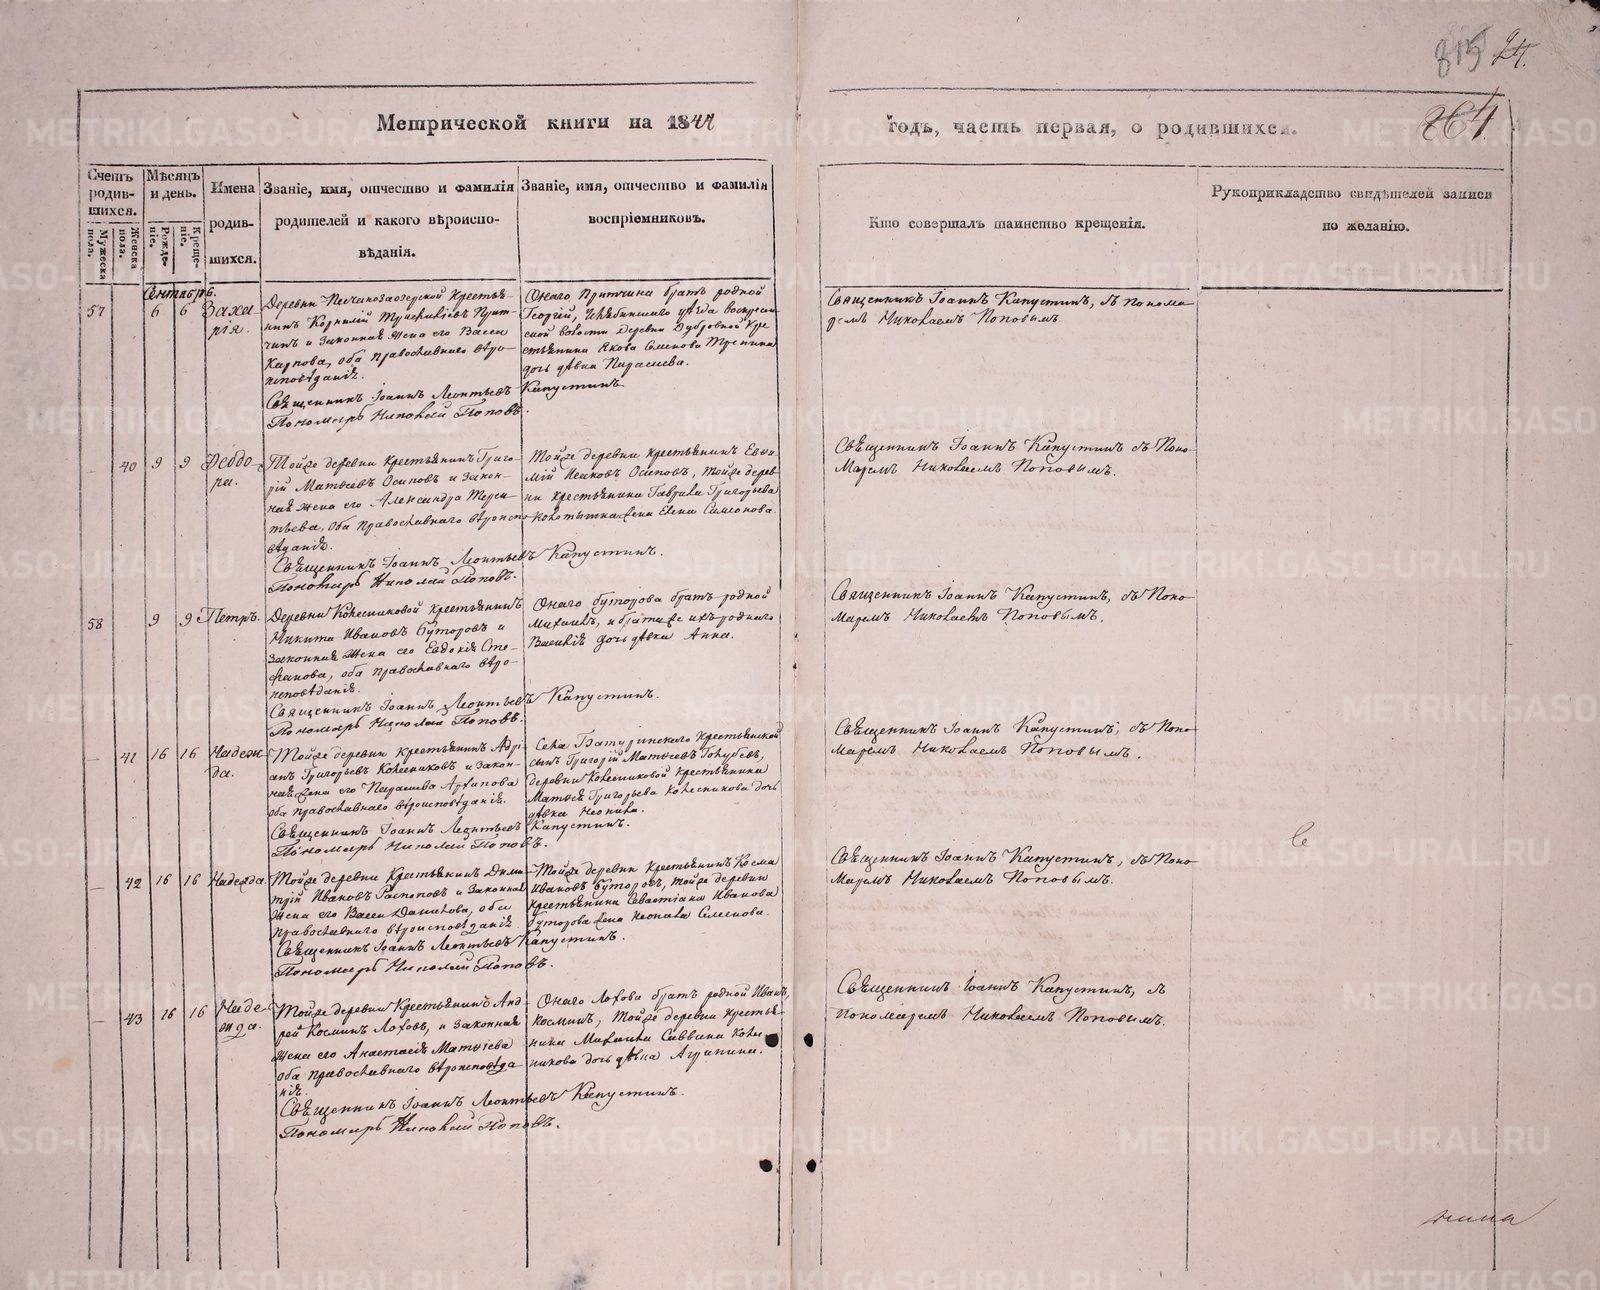 24.
Метрической книги на 1844
годъ, часть первая, о родившихся.
Счетъ родив-шихся.
Мѣсяцъ и день.
Имена родив-шихся.
Званіе, имя, отчество и фамилія
родителей и какого вѣроиспо-
вѣданія.
Званіе, имя, отчество и фамилія
воспріемниковъ.
Кто совершалъ таинство крещенія.
Рукоприкладство свидѣтелей записи
по желанію.
Мужеска пола.
Женска пола.
Рожде-ніе.
Креще-ніе.
Сентябрь.
57
6
6
Заха-
рія.
Деревни Песчанозаозерской Крестья-
нинъ Корнилій
и законная жена его Васса
Карпова, оба православнаго вѣро-
исповѣданія.
Священникъ Іоаннъ Леонтьевъ Капустинъ.
Пономарь Николай Поповъ.
Онаго Притчина братъ родной
Георгій, Челябинскаго уѣзда воскресен-
ской волости деревни Дубровной Кре-
стьянина Якова Семенова
дочь дѣвка Параскева.
Священникъ Іоаннъ Капустинъ, съ понома-
ремъ Николаемъ Поповымъ.
40
9
9
Феодо-
ра.
Тойже деревни крестьянинъ Григо-
рій Матвеевъ Осиповъ и закон-
ная жена его Александра Терен-
тьева, оба православнаго вѣроиспо-
вѣданія.
Священникъ Іоаннъ Леонтьевъ Капустинъ.
Пономарь Николай Поповъ.
Тойже деревни крестьянинъ Евфи-
мій Исаковъ Осиповъ, тойже дерев-
ни крестьянина Гаврила Григорьева
жена Елена Симонова.
Священникъ Іоаннъ Капустинъ съ Поно-
маремъ Николаемъ Поповымъ.
58
9
9
Петръ.
Деревни Колесниковой крестьянинъ
Никита Ивановъ Буторовъ и
законная жена его Евдокія Сте-
фанова, оба православнаго вѣро-
исповѣданія.
Священникъ Іоаннъ Леонтьевъ Капустинъ.
Пономарь Николай Поповъ.
Онаго буторова братъ родной
Михаилъ, и брата же ихъ роднаго
Василія дочь дѣвка Анна.
Священникъ Іоаннъ Капустинъ, съ Поно-
маремъ Николаемъ Поповымъ.
41
16
16
Надеж-
да.
Тойже деревни крестьянинъ Адрі-
анъ Григорьевъ Колесниковъ и закон-
ная жена его Параскева Архипова
оба православнаго вѣроисповѣданія.
Священникъ Іоаннъ Леонтьевъ Капустинъ.
Пономарь Николай Поповъ.
Села Батуринскаго Крестьянской
сынъ Григорій Матвеевъ Голубевъ,
деревни Колесниковой крестьянина
Матвея Григорьева Колесникова дочь
дѣвка Неонила.
Священникъ Іоаннъ Капустинъ, съ Поно-
маремъ Николаемъ Поповымъ.
42
16
16
Надежда.
Тойже деревни Крестьянинъ Дими-
трій Ивановъ Распоповъ и законная
жена его Васса Данилова, оба
православнаго вѣроисповѣданія
Священникъ Іоаннъ Леонтьевъ Капустинъ.
Пономарь Николай Поповъ.
Тойже деревни крестьянинъ Косма
Ивановъ Буторовъ, тойже деревни
крестьянина Севастіана Иванова
буторова жена Неонила Семенова.
Священникъ Іоаннъ Капустинъ, съ Поно-
маремъ Николаемъ Поповымъ.
43
16
16
Наде-
жда.
Тойже деревни Крестьянинъ Анд-
рей Косминъ Лоховъ, и законная
жена его Анастасія Матвіева
оба православнаго вѣроисповѣда-
нія.
Священникъ Іоаннъ Леонтьевъ Капустинъ.
Пономарь Николай Поповъ.
Онаго Лохова братъ родной Иванъ,
косминъ, тойже деревни крестья-
нина Михаила Саввина Колес-
никова дочь дѣвка Агрипина.
Священникъ Іоаннъ Капустинъ, съ
пономаремъ Николаемъ Поповымъ.